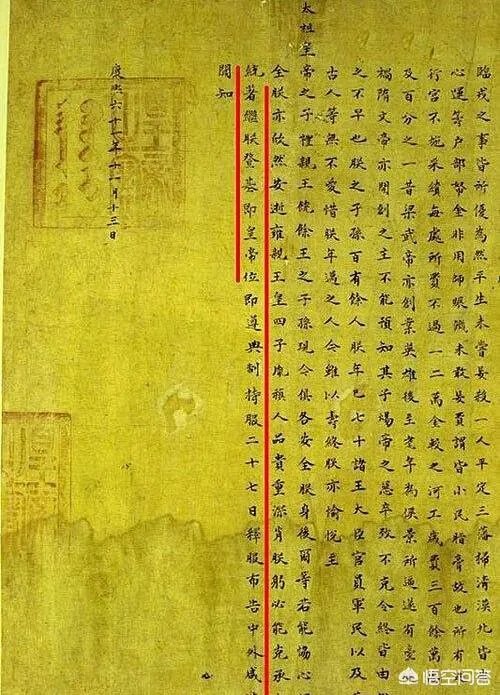 臨戎之事皆所優為然平生未嘗妄殺一人平定三藩掃清漠北皆
心運籌戶部帑金非用師賑饑未敢妄費謂皆小民脂膏故也所有
行宮不施采繢每處所費不過一二萬金較之河工歲費三百餘萬
及百分之一昔梁武帝亦創業英雄後至耄年為侯景所逼遂有臺
禍隋文帝亦開創之主不能預知其子煬帝之惡卒致不克令終皆由
之不早也朕之子孫百有餘人朕年已七十諸王大臣官員軍民以及
古人等無不愛惜朕年邁之人今雖以壽終朕亦愉悅至
太祖皇帝之子禮親王饒餘王之子孫現今俱各安全朕身後爾等若能協心
全朕亦欣然安逝雍親王皇四子胤禛人品貴重深肖朕躬必能克承
統著繼朕登基即皇帝位即遵典制持服二十七日釋服布告中外咸
聞知
康熙六十一年十一月十三日
悟空问答